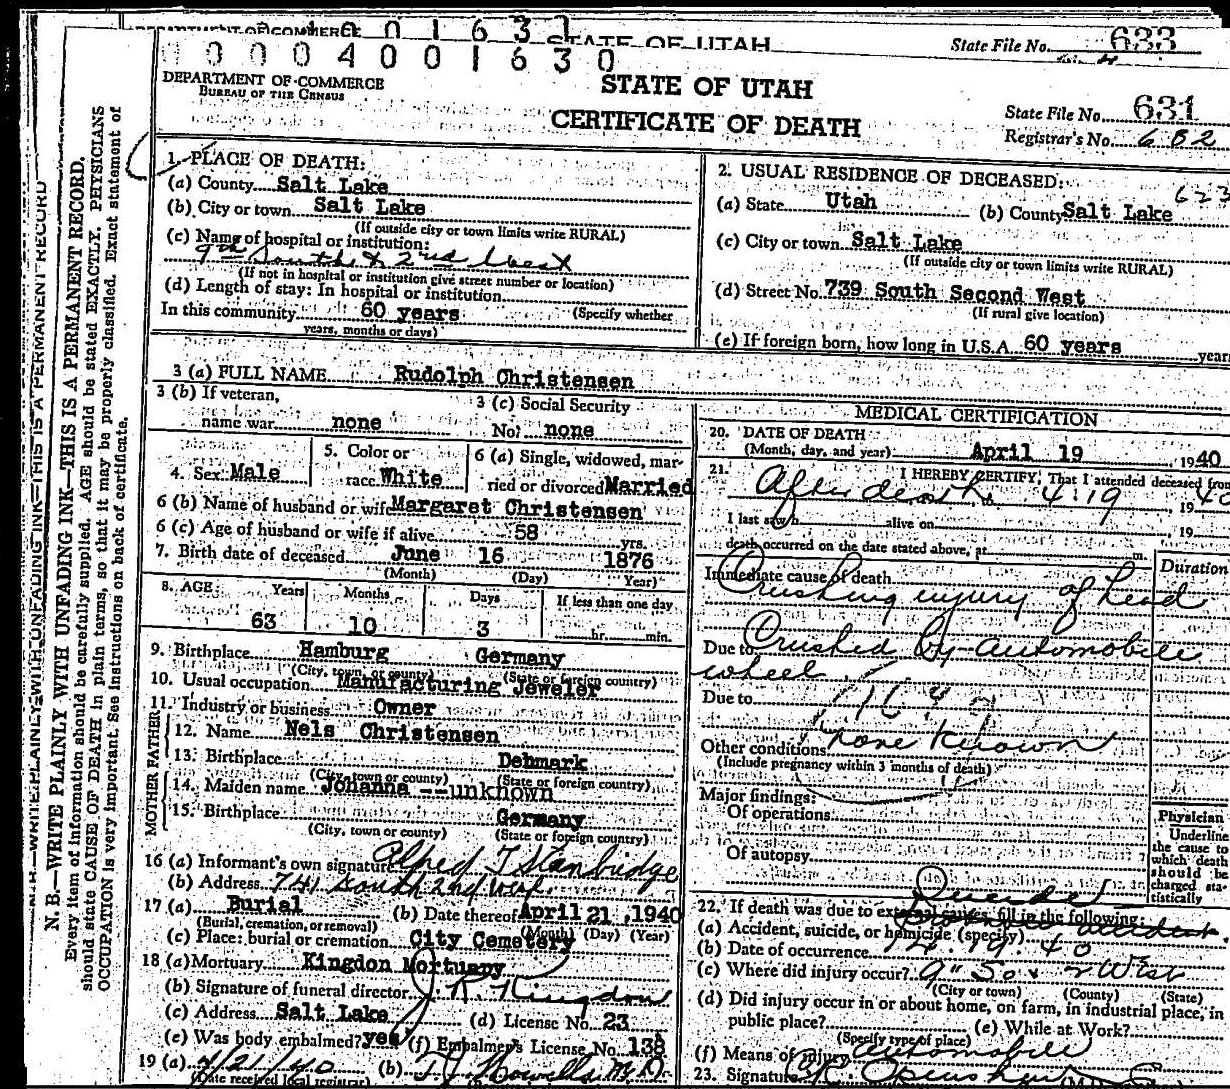 DEPARTMENT OF COMMERCE
STATE OF UTAH
State File No. 633
0 0 0 4 0 0 1 6 3 0
DEPARTMENT OF COMMERCE
BUREAU OF THE CENSUS
STATE OF UTAH
CERTIFICATE OF DEATH
State File No. 631
Registrar's No. 682
N. B.—WRITE PLAINLY WITH UNFADING INK—THIS IS A PERMANENT RECORD.
Every item of information should be carefully supplied. AGE should be stated EXACTLY. PHYSICIANS
should state CAUSE OF DEATH in plain terms, so that it may be properly classified. Exact statement of
OCCUPATION is very important. See instructions on back of certificate.
1. PLACE OF DEATH:
(a) County Salt Lake
(b) City or town Salt Lake
(If outside city or town limits write RURAL)
(c) Name of hospital or institution:
9th South & 2nd West
(If not in hospital or institution give street number or location)
(d) Length of stay: In hospital or institution
In this community 60 years (Specify whether
years, months or days)
2. USUAL RESIDENCE OF DECEASED:
623
(a) State Utah (b) County Salt Lake
(c) City or town Salt Lake
(If outside city or town limits write RURAL)
(d) Street No. 739 South Second West
(If rural give location)
(e) If foreign born, how long in U.S.A. 60 years years
3 (a) FULL NAME Rudolph Christensen
3 (b) If veteran,
name war none
3 (c) Social Security
No. none
4. Sex Male
5. Color or
race White
6 (a) Single, widowed, mar-
ried or divorced Married
6 (b) Name of husband or wife Margaret Christensen
6 (c) Age of husband or wife if alive 58 yrs.
7. Birth date of deceased June 16 1876
(Month) (Day) Year)
8. AGE: Years Months Days If less than one day
63 10 3 hr. min.
9. Birthplace Hamburg Germany
(City, town, or county) (State or foreign country)
10. Usual occupation Manufacturing Jeweler
11. Industry or business Owner
FATHER
12. Name Nels Christensen
13. Birthplace Denmark
(City, town or county) (State or foreign country)
MOTHER
14. Maiden name Johanna --unknown
15. Birthplace Germany
(City, town or county) (State or foreign country)
16 (a) Informant's own signature Alfred T Stanbridge
(b) Address 741 South 2nd West
17 (a) Burial (b) Date thereof April 21, 1940
(Burial, cremation, or removal) (Month) (Day) (Year)
(c) Place: burial or cremation City Cemetery
18 (a) Mortuary Kingdon Mortuary
(b) Signature of funeral director J. R. Kingdon
(c) Address Salt Lake (d) License No. 23
(e) Was body embalmed? yes (f) Embalmer's License No. 138
19 (a) 4/21/40 (b)
(Date received local registrar)
MEDICAL CERTIFICATION
20. DATE OF DEATH
(Month, day, and year) April 19 1940
21. I HEREBY CERTIFY, That I attended deceased from
After death to 4:19, 1940
I last saw h alive on 19
death occurred on the date stated above, at m.
Duration
Immediate cause of death
Crushing injury of head
Due to Crushed by automobile
wheel
Due to
Other conditions none known
(Include pregnancy within 3 months of death)
Major findings:
Of operations
Of autopsy
Physician
Underline
the cause to
which death
should be
charged sta-
tistically
22. If death was due to external causes, fill in the following:
(a) Accident, suicide, or homicide (specify) accident
(b) Date of occurrence 4. 19. 40
(c) Where did injury occur? 9" So & 2 West
(City or town) (County) (State)
(d) Did injury occur in or about home, on farm, in industrial place, in
public place? (e) While at Work?
(Specify type of place)
(f) Means of injury Automobile
23. Signature